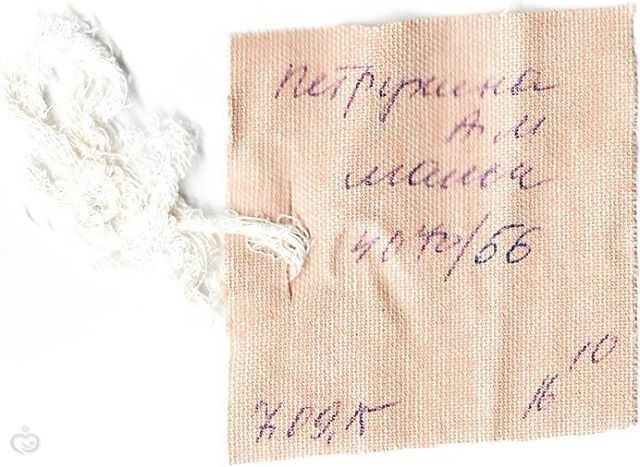 Петрухина
А.М
мальч
4040/56
7.09.15
16 10